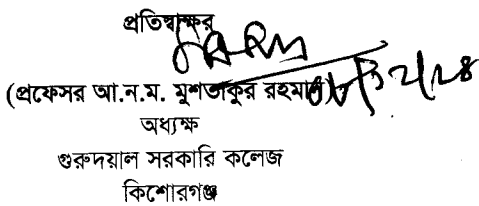 প্রতিস্বাক্ষর
(প্রফেসর আ.ন.ম. মুশতাকুর রহমান)
অধ্যক্ষ
গুরুদয়াল সরকারি কলেজ
কিশোরগঞ্জ